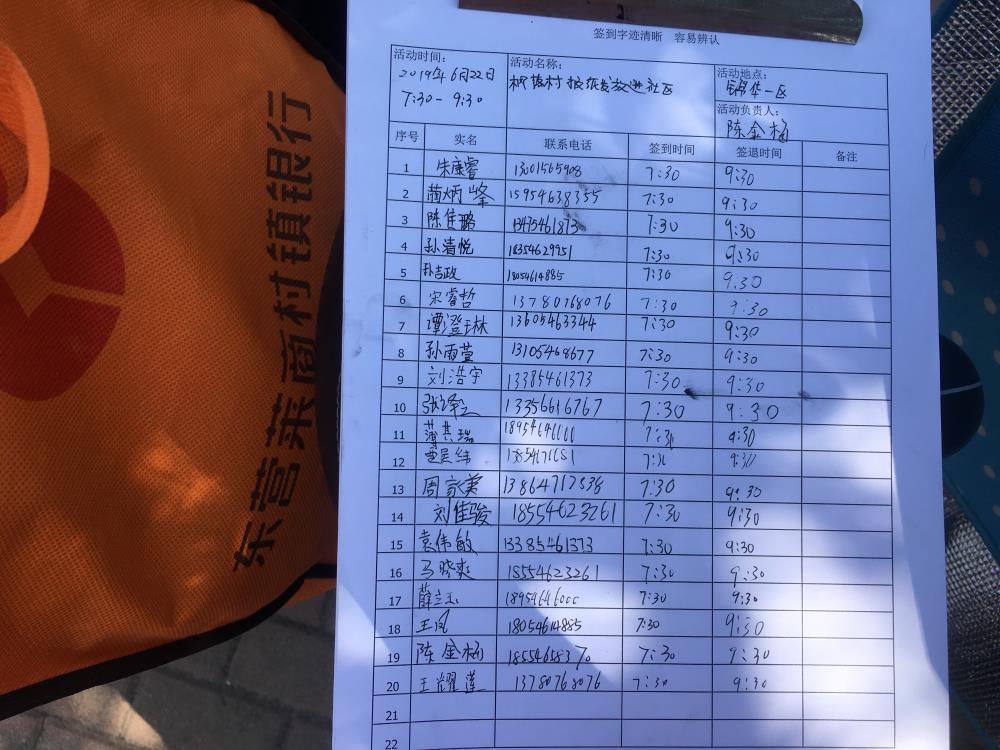 签到字迹清晰 容易辨认
活动时间: 2019年6月22日 7:30-9:30
活动名称: 报纸发放进社区
活动地点: 锦华一区
活动负责人: 陈金梅
序号 实名 联系电话 签到时间 签退时间 备注
1 朱康睿 13001565908 7:30 9:30
2 蔺炳峰 15954638355 7:30 9:30
3 陈佳璐 13475461873 7:30 9:30
4 孙清悦 18354629951 7:30 9:30
5 孙吉政 18054614885 7:30 9:30
6 宋睿哲 13780768076 7:30 9:30
7 谭澄琳 13605463344 7:30 9:30
8 孙雨萱 13105468677 7:30 9:30
9 刘浩宇 13385461373 7:30 9:30
10 13356616767 7:30 9:30
11 薄其瑞 7:30 9:30
12 7:30 9:30
13 周家美 13864712838 7:30 9:30
14 刘佳骏 18554623261 7:30 9:30
15 袁伟敏 13385461373 7:30 9:30
16 马晓爽 18554623261 7:30 9:30
17 薛立玉 7:30 9:30
18 王凤 18054614885 7:30 9:30
19 陈金梅 7:30 9:30
20 王耀莲 13780768076 7:30 9:30
21
22
东营莱商村镇银行